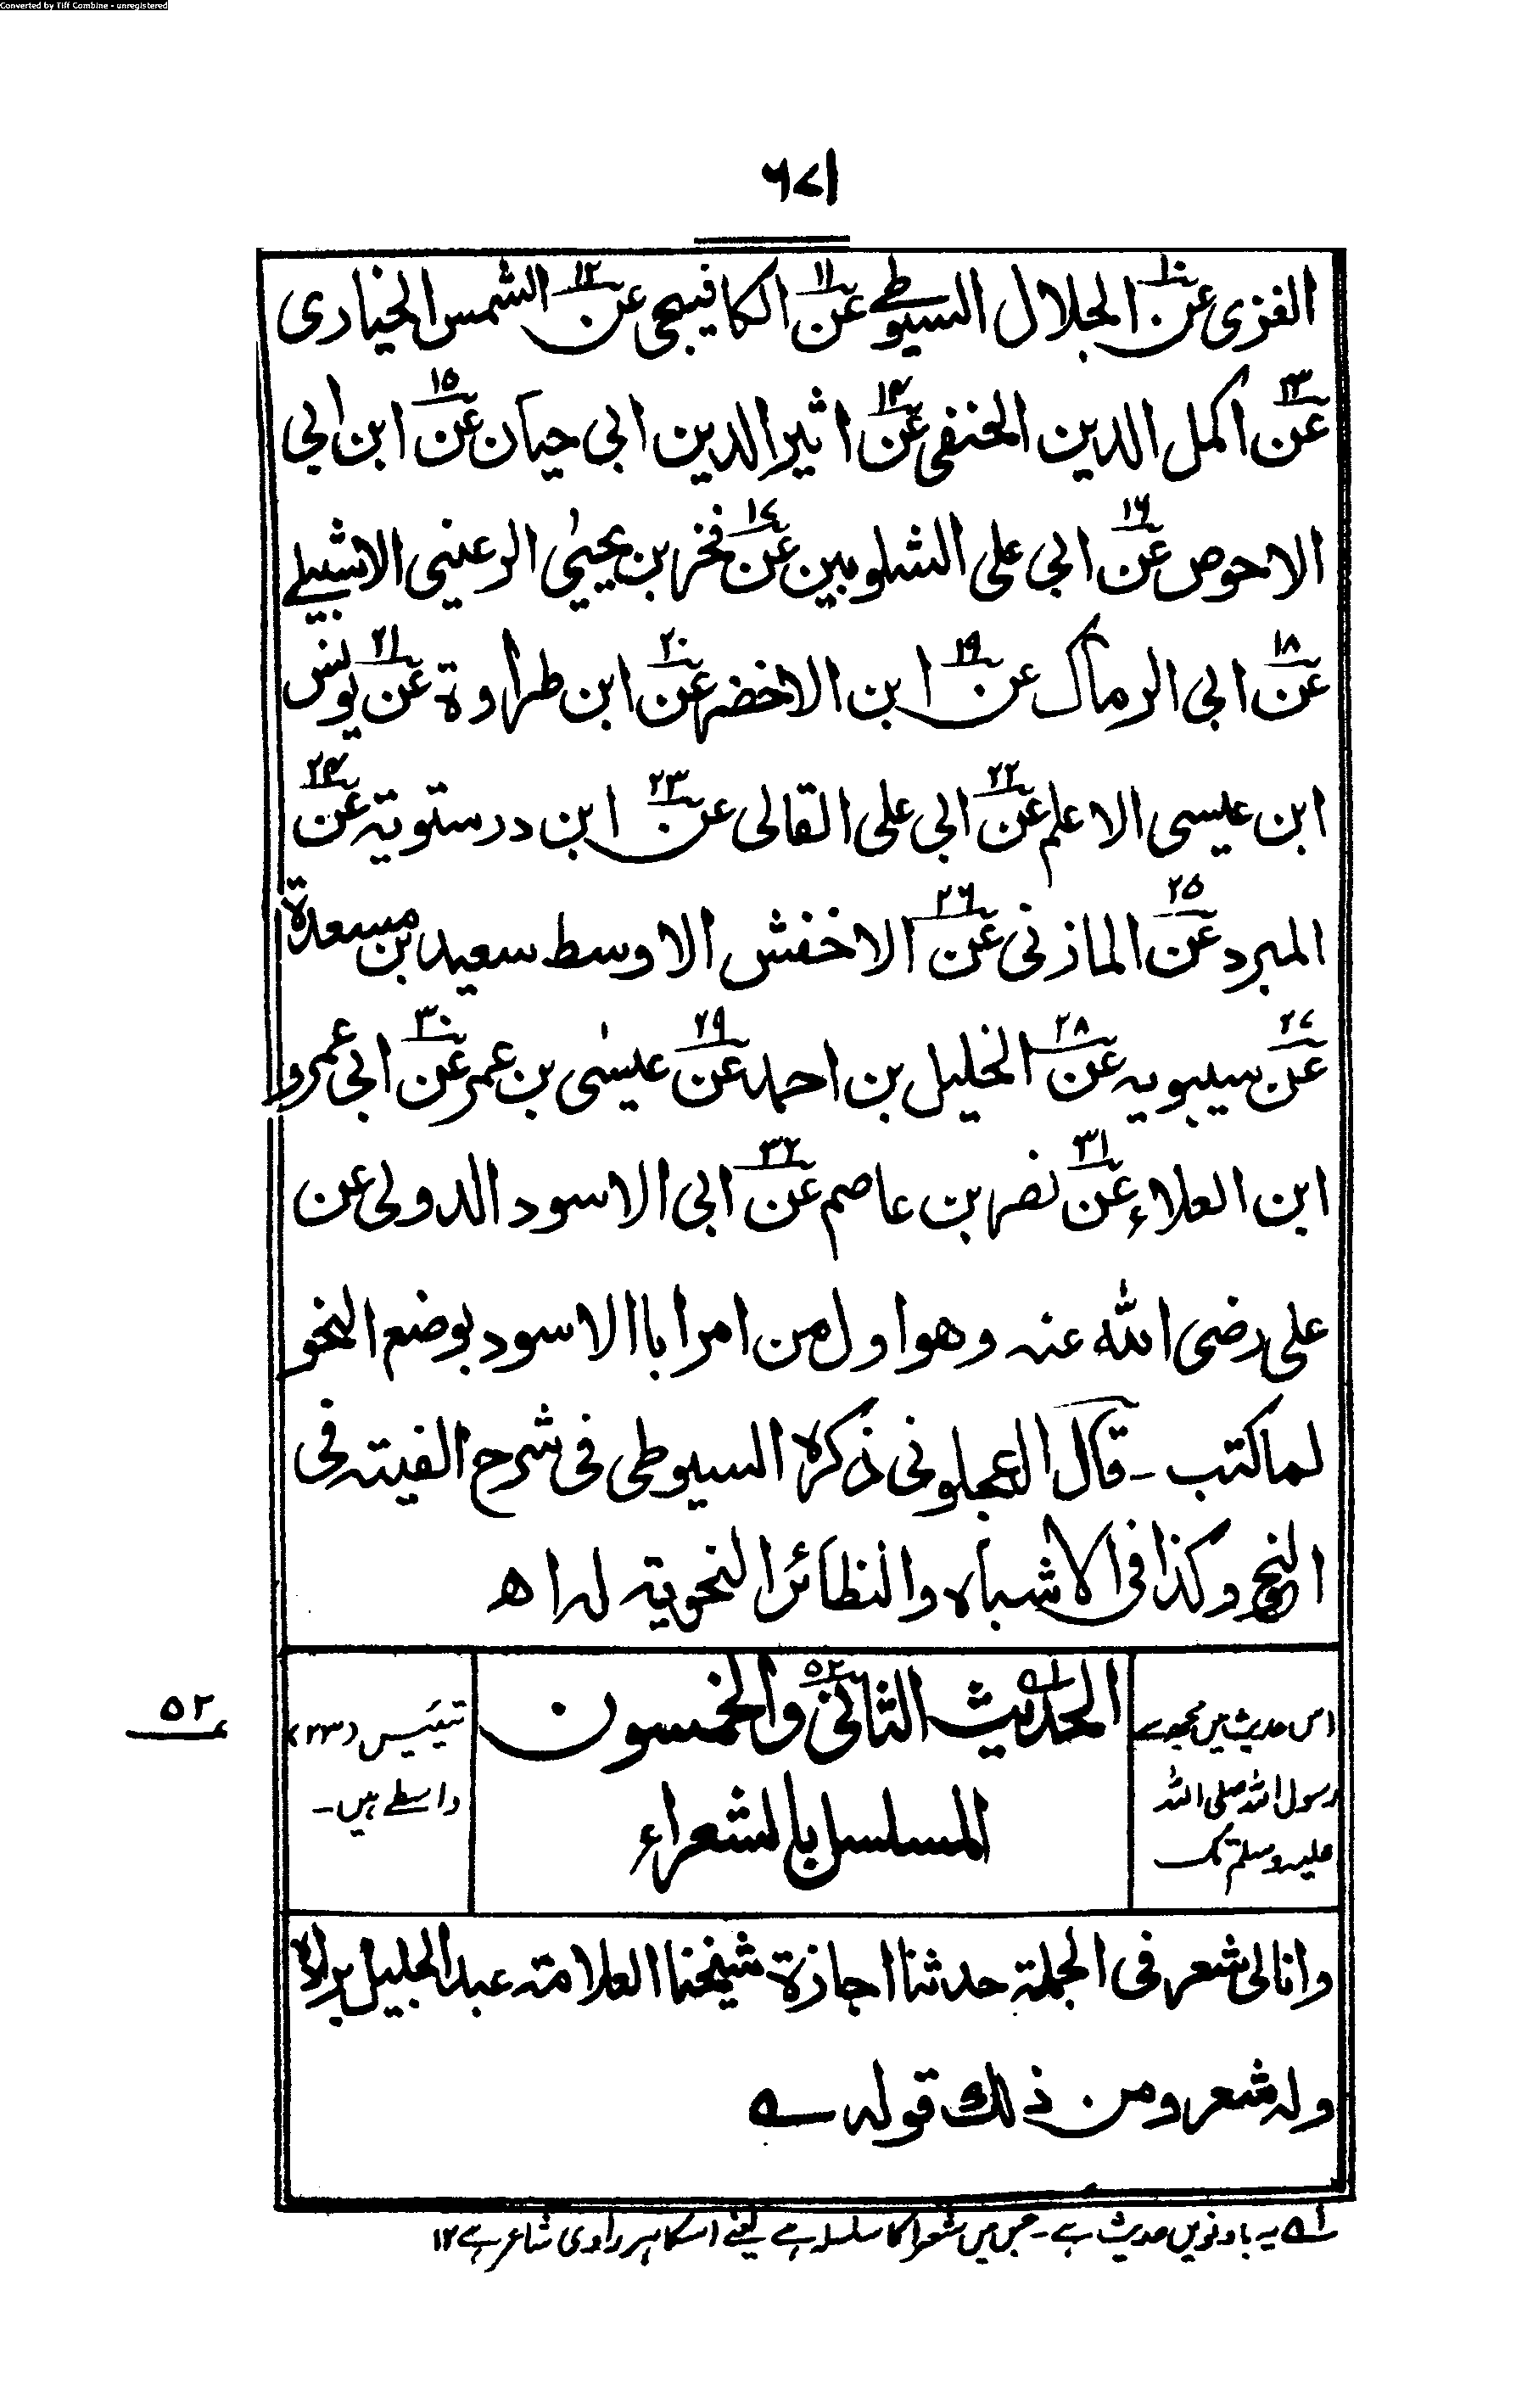 Converted by Tiff Combine - unregistered
۶۷۱
الغزی عن۱۰ الجلال السیوطے عن۱۱ الکافیجی عن۱۲ الشمس الخیاری
عن۱۳ اکمل الدین الحنفی عن۱۴ اثیر الدین ابی حیان عن۱۵ ابن ابی
الاحوص عن۱۶ ابی علی الشلوبین عن۱۷ فخر بن یحیٰی الرعینی الاشبیلے
عن۱۸ ابی الرماک عن۱۹ ابن الاخضر عن۲۰ ابن طراوة عن۲۱ یونس
ابن عیسی الاعلم عن۲۲ ابی علی القالی عن۲۳ ابن درستویة عن۲۴
المبرد عن۲۵ المازنی عن۲۶ الاخفش الاوسط سعید بن مسعدة
عن۲۷ سیبویه عن۲۸ الخلیل بن احمد عن۲۹ عیسٰی بن عمر عن۳۰ ابی عمرو
ابن العلاء عن۳۱ نصر بن عاصم عن۳۲ ابی الاسود الدولی عن
علی رضی الله عنه وهو اول من امر ابا الاسود بوضع النحو
لما کتب ۔ قال العجلونی ذکره السیوطی فی شرح الفیته فی
النحو وکذا فی الاشباه والنظائر النحویة له اھ
اس حدیث میں مجھ سے
رسول اللہ صلی اللہ
علیہ وسلم تک
الحدیث۱ الثانی۵۲ والخمسون
المسلسل بالشعراء
تیئیس (۲۳)
واسطے ہیں۔
۵۲
وانا لی شعر فی الجملة حدثنا اجازة شیخنا العلامة عبد الجلیل برادہ
وله شعر ومن ذلك قوله ؎
؎۱ یہ باونویں حدیث ہے۔ جس میں شعرا کا سلسلہ ہے یعنے اسکا ہر راوی شاعر ہے ۱۲